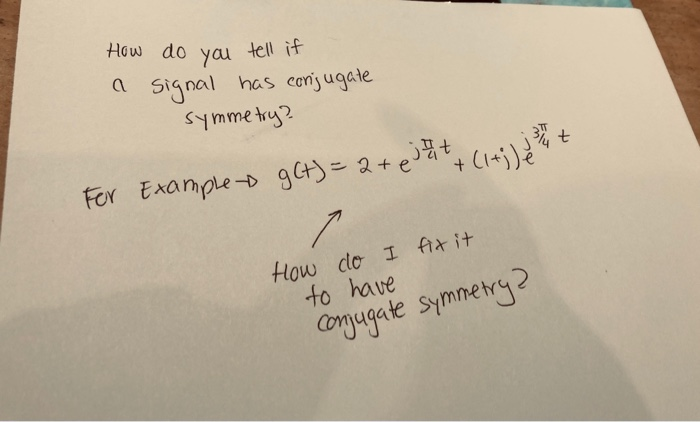 How do you tell if
a signal has conjugate
symmetry?
For Example→ g(t) = 2 + e^{j π/4 t} + (1+j) e^{j 3π/4 t}
How do I fix it
to have
conjugate symmetry?